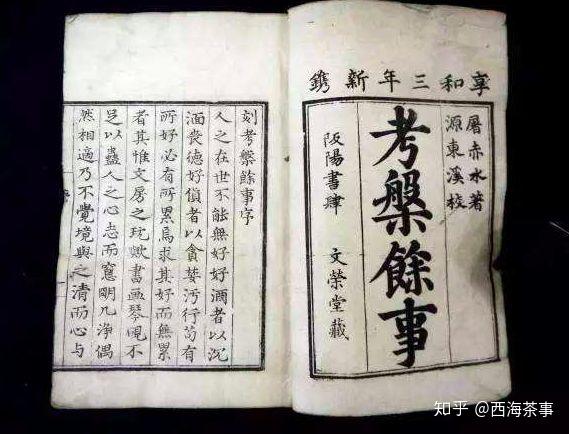 享和三年新鐫
屠赤水著
源東溪校
考槃餘事
阪陽書肆 文榮堂藏
刻考槃餘事序
人之在世不能無好好酒者以沉
湎喪德好貨者以貪婪汚行苟有
所好必有所累焉求其好而無累
者其惟文房之玩歟書画琴硯不
足以蠱人之心志而窓明几浄偶
然相適乃不覺境與之清而心与
知乎 @西海茶事